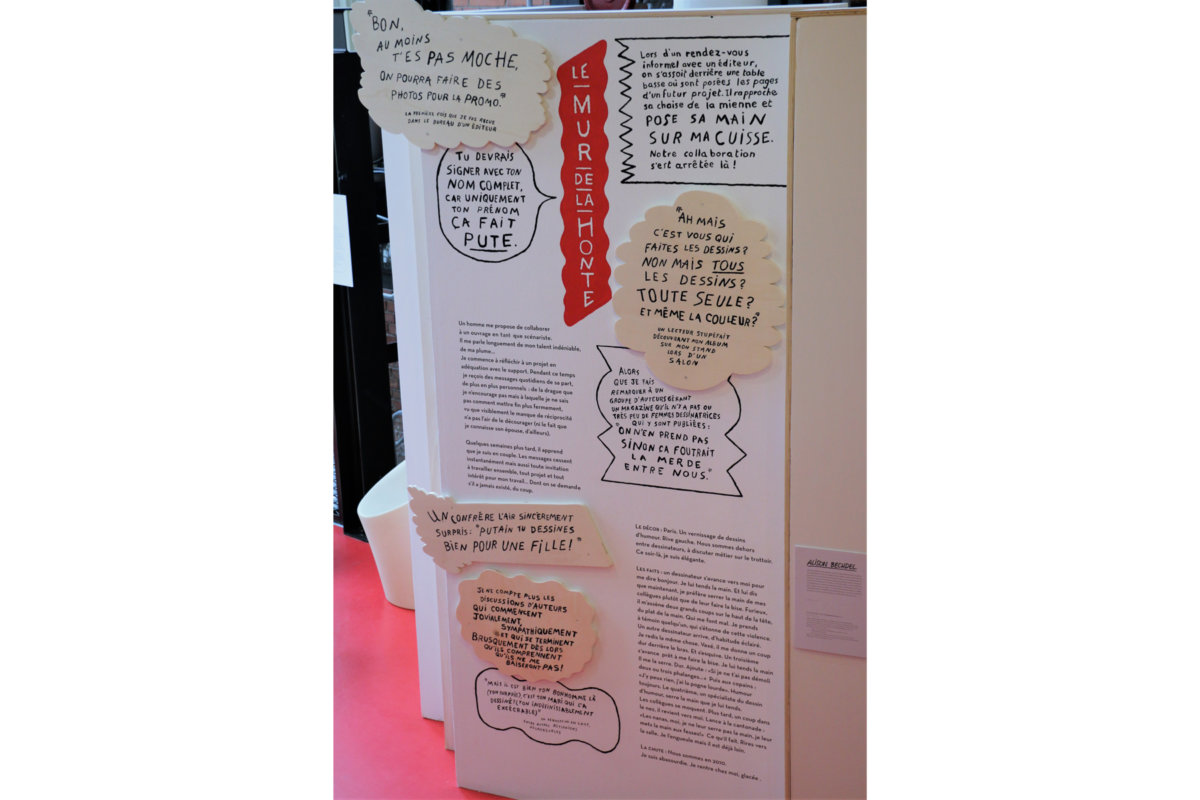 "BON,
AU MOINS
T'ES PAS MOCHE,
ON POURRA FAIRE DES
PHOTOS POUR LA PROMO."
LA PREMIÈRE FOIS QUE JE FUS REÇUE
DANS LE BUREAU D'UN ÉDITEUR
TU DEVRAIS
SIGNER AVEC TON
NOM COMPLET,
CAR UNIQUEMENT
TON PRÉNOM
ÇA FAIT
PUTE.
LE
MUR
DE
LA
HONTE
Lors d'un rendez-vous
informel avec un éditeur,
on s'assoit derrière une table
basse où sont posées les pages
d'un futur projet. Il rapproche
sa chaise de la mienne et
POSE SA MAIN
SUR MA CUISSE.
Notre collaboration
s'est arrêtée là !
"AH MAIS
C'EST VOUS QUI
FAITES LES DESSINS ?
NON MAIS TOUS
LES DESSINS ?
TOUTE SEULE ?
ET MÊME LA COULEUR ?"
UN LECTEUR STUPÉFAIT
DÉCOUVRANT MON ALBUM
SUR MON STAND
LORS D'UN
SALON
Un homme me propose de collaborer
à un ouvrage en tant que scénariste.
Il me parle longuement de mon talent indéniable,
de ma plume...
Je commence à réfléchir à un projet en
adéquation avec le support. Pendant ce temps
je reçois des messages quotidiens de sa part,
de plus en plus personnels : de la drague que
je n'encourage pas mais à laquelle je ne sais
pas comment mettre fin plus fermement,
vu que visiblement le manque de réciprocité
n'a pas l'air de le décourager (ni le fait que
je connaisse son épouse, d'ailleurs).
Quelques semaines plus tard, il apprend
que je suis en couple. Les messages cessent
instantanément mais aussi toute invitation
à travailler ensemble, tout projet et tout
intérêt pour mon travail... Dont on se demande
s'il a jamais existé, du coup.
ALORS
QUE JE FAIS
REMARQUER À UN
GROUPE D'AUTEURS GÉRANT
UN MAGAZINE QU'IL N'Y A PAS OU
TRÈS PEU DE FEMMES DESSINATRICES
QUI Y SONT PUBLIÉES :
"ON N'EN PREND PAS
SINON ÇA FOUTRAIT
LA MERDE
ENTRE NOUS."
UN CONFRÈRE L'AIR SINCÈREMENT
SURPRIS : "PUTAIN TU DESSINES
BIEN POUR UNE FILLE !"
JE NE COMPTE PLUS LES
DISCUSSIONS D'AUTEURS
QUI COMMENCENT
JOVIALEMENT,
SYMPATHIQUEMENT
ET QUI SE TERMINENT
BRUSQUEMENT DÈS LORS
QU'ILS COMPRENNENT
QU'ILS NE ME
BAISERONT PAS !
"MAIS IL EST BIEN TON BONHOMME LÀ
(TON SURPRIS), C'EST TON MARI QUI L'A
DESSINÉ ? (TON INDÉFINISSABLEMENT
EXÉCRABLE)"
LE DÉCOR : Paris. Un vernissage de dessins
d'humour. Rive gauche. Nous sommes dehors
entre dessinateurs, à discuter métier sur le trottoir.
Ce soir-là, je suis élégante.
LES FAITS : un dessinateur s'avance vers moi pour
me dire bonjour. Je lui tends la main. Et lui dis
que maintenant, je préfère serrer la main de mes
collègues plutôt que de leur faire la bise. Furieux,
il m'assène deux grands coups sur le haut de la tête,
du plat de la main. Qui me font mal. Je prends
à témoin quelqu'un, qui s'étonne de cette violence.
Un autre dessinateur arrive, d'habitude éclairé.
Je redis la même chose. Vexé, il me donne un coup
dur derrière le bras. Et s'esquive. Un troisième
s'avance prêt à me faire la bise. Je lui tends la main
Il me la serre. Dur. Ajoute : «Si je ne t'ai pas démoli
deux ou trois phalanges...» Puis aux copains :
«J'y peux rien, j'ai la pogne lourde». Humour
toujours. Le quatrième, un spécialiste du dessin
d'humour, serre la main que je lui tends.
Les collègues se moquent. Plus tard, un coup dans
le nez, il revient vers moi. Lance à la cantonade :
«Les nanas, moi, je ne leur serre pas la main, je leur
mets la main aux fesses!» Ce qu'il fait. Rires vers
la salle. Je l'engueule mais il est déjà loin.
LA CHUTE : Nous sommes en 2010.
Je suis abasourdie. Je rentre chez moi, glacée.
ALISON BECHDEL